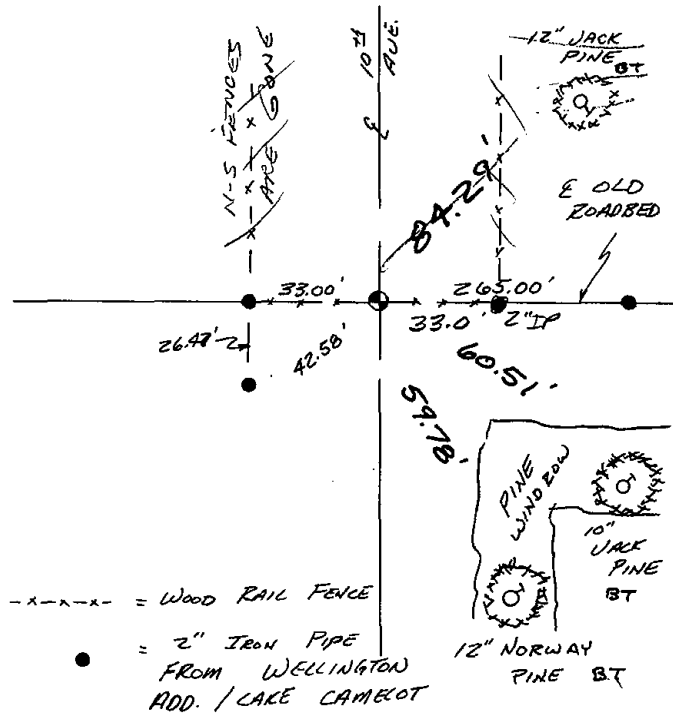 N-S FENCES
ARE GONE
10TH
AVE.
℄
12" JACK
PINE
BT
84.29'
℄ OLD
ROADBED
33.00'
265.00'
33.0'
2" IP
26.47'
42.58'
60.51'
59.78'
PINE
WINDROW
10"
JACK
PINE
BT
12" NORWAY
PINE BT
-x-x-x- = WOOD RAIL FENCE
= 2" IRON PIPE
FROM WELLINGTON
ADD. / LAKE CAMELOT